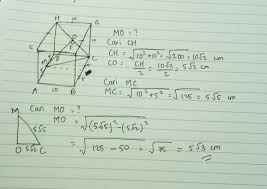 H G
M
E
D C
A 10 B
10
MO = ?
Cari CH
CH = √10² + 10² = √200 = 10√2 cm
CO = CH/2 = 10√2/2 = 5√2 cm
Cari MC
MC = √10² + 5² = √125 = 5√5 cm
Cari MO = ?
MO = √(5√5)² - (5√2)²
= √125 - 50 = √75 = 5√3 cm
M
5√5
O 5√2 C